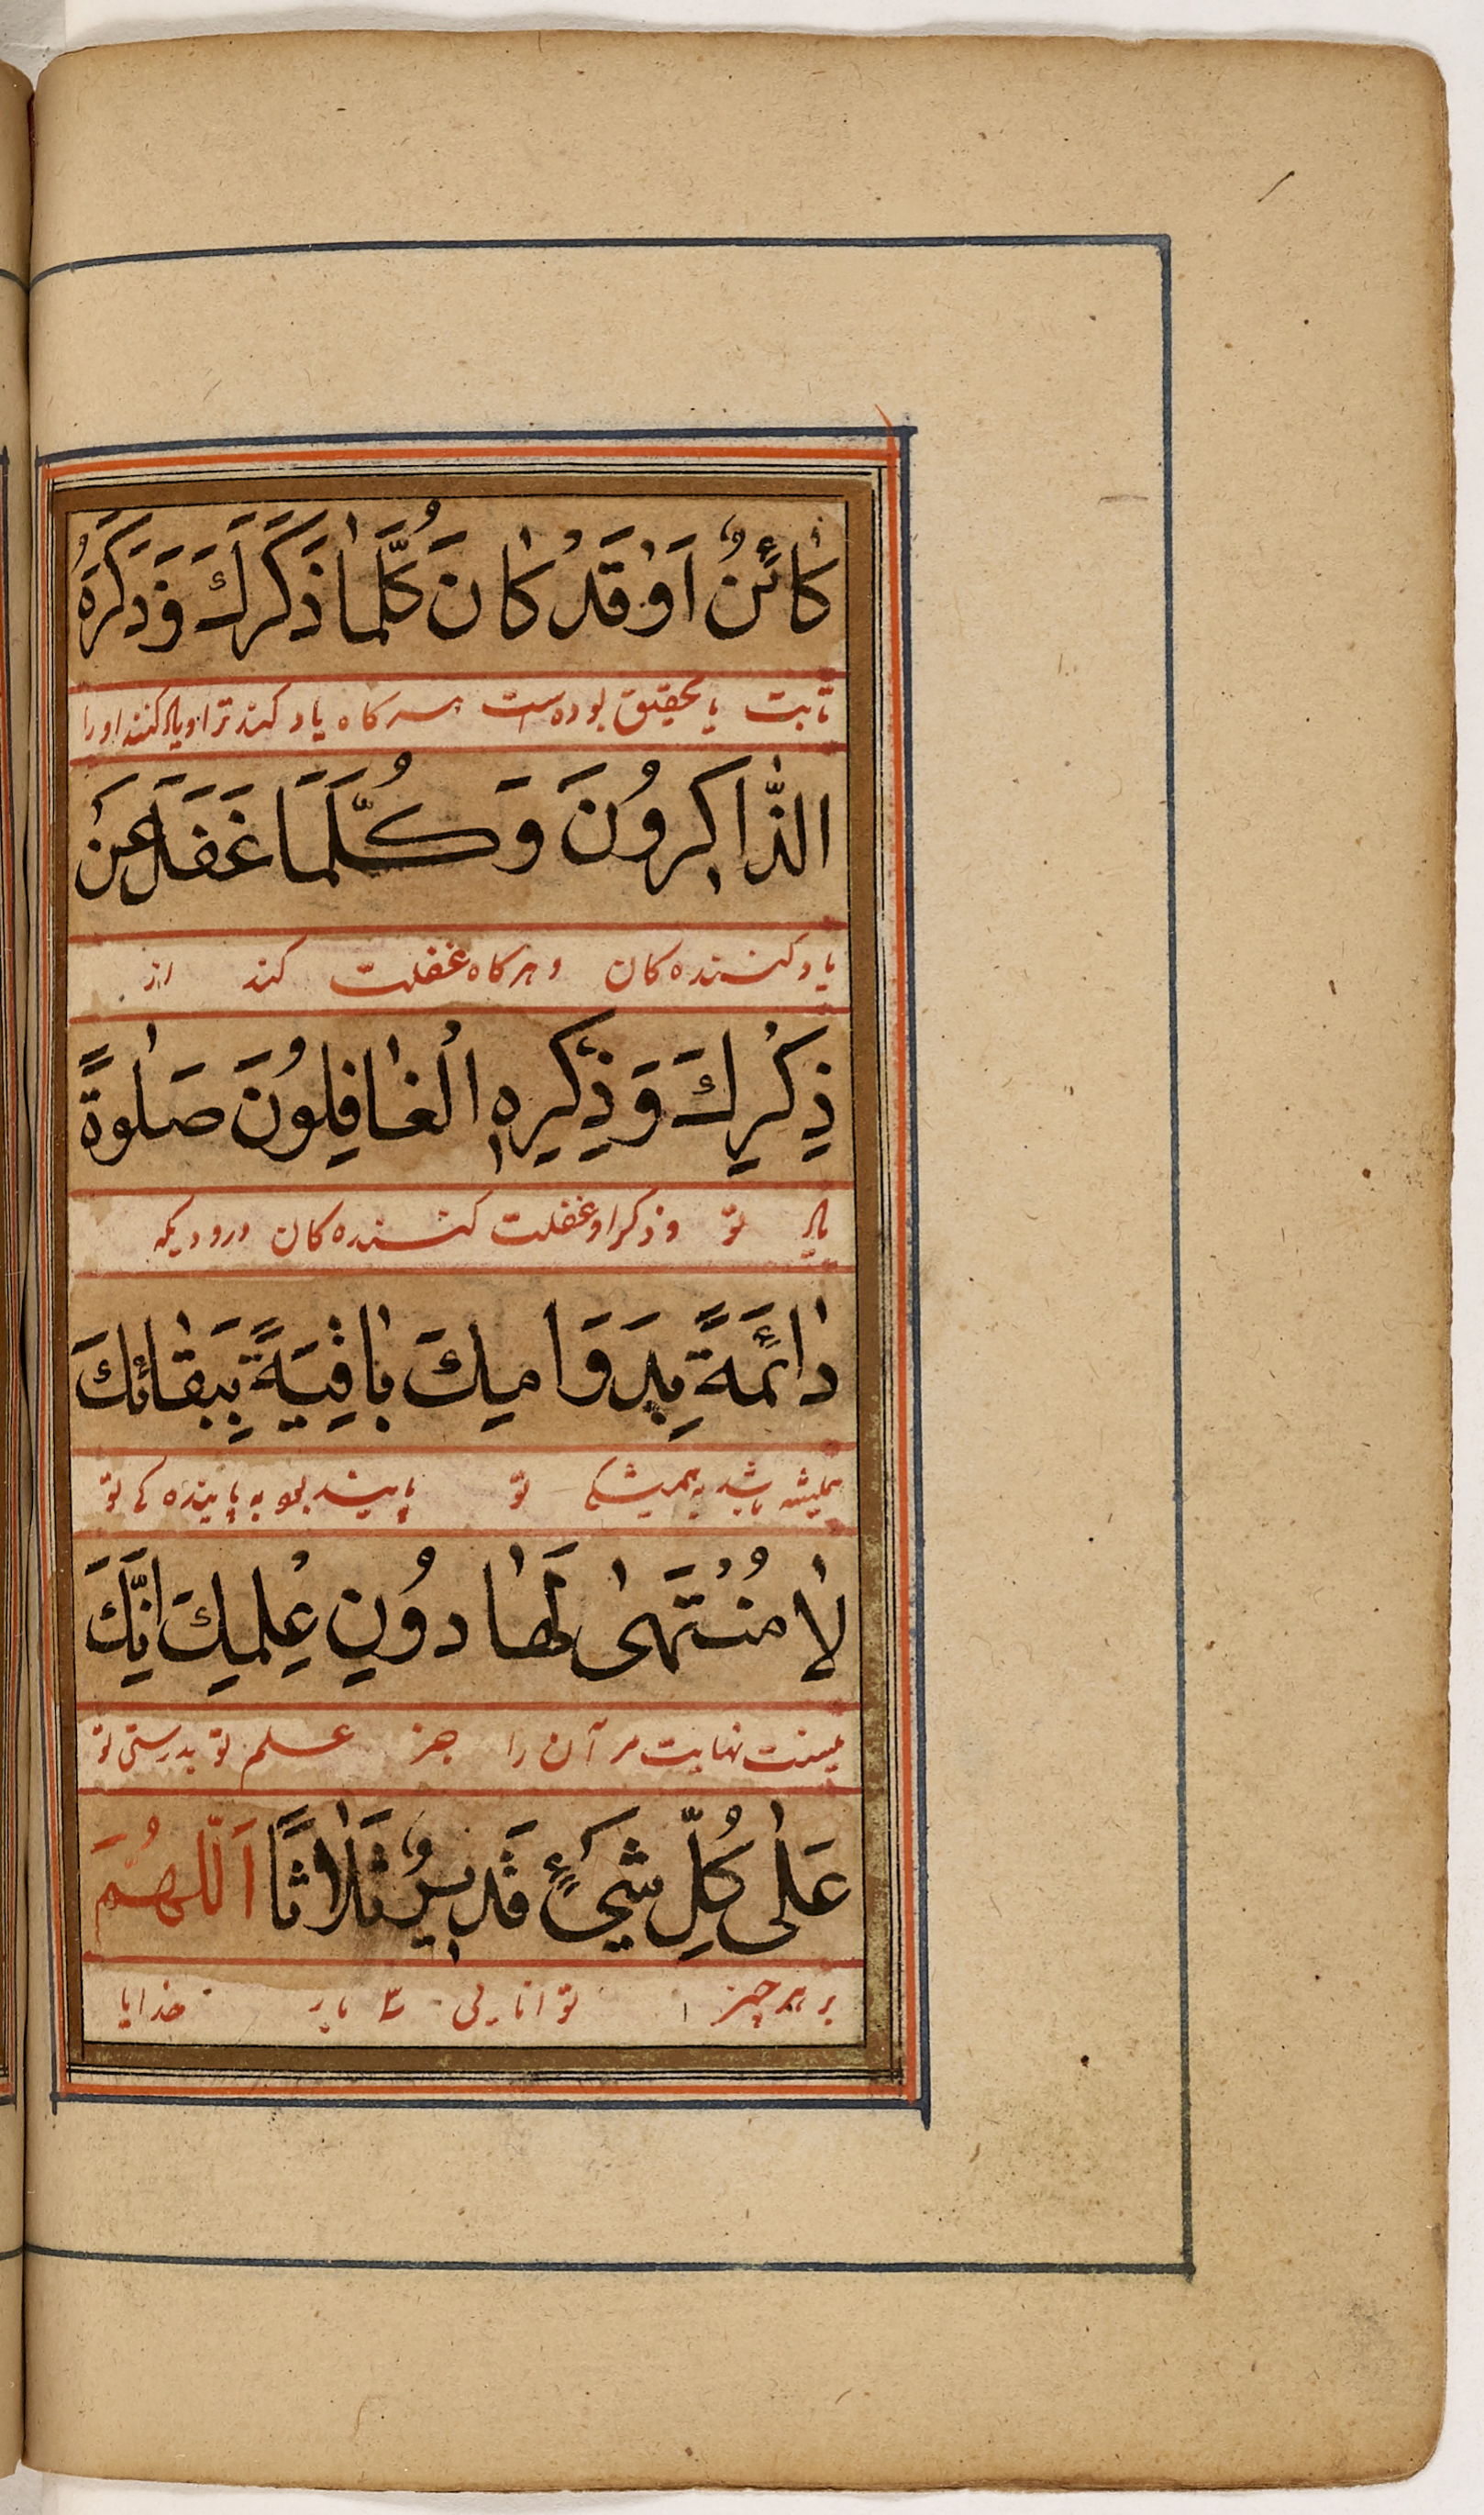 كٰائِنٌ اَوْ قَدْ كٰانَ كُلَّمٰا ذَكَرَكَ وَذَكَرَهُ
ثابت یا بتحقیق بوده است هرکاه یاد کند ترا و یاد کنند اورا
الذّٰاكِرُونَ وَكُلَّمَا غَفَلَ عَنْ
یاد کننده کان و هرکاه غفلت کند از
ذِكْرِكَ وَذِكْرِهِ الْغٰافِلُونَ صَلٰوةً
یاد تو و ذکر او غفلت کننده کان درودیکه
دٰائِمَةً بِدَوَامِكَ بٰاقِيَةً بِبَقٰائِكَ
همیشه باشد به همیشکی تو پاینده بود به پاینده کی تو
لٰا مُنْتَهٰى لَهٰا دُونِ عِلْمِكَ اِنَّكَ
نیست نهایت مر آن را جز علم تو بدرستی تو
عَلٰى كُلِّ شَيْءٍ قَدِيرٌ ثَلٰاثًا اَللّٰهُمَّ
بر هر چیز توانایی ۳ بار خدایا